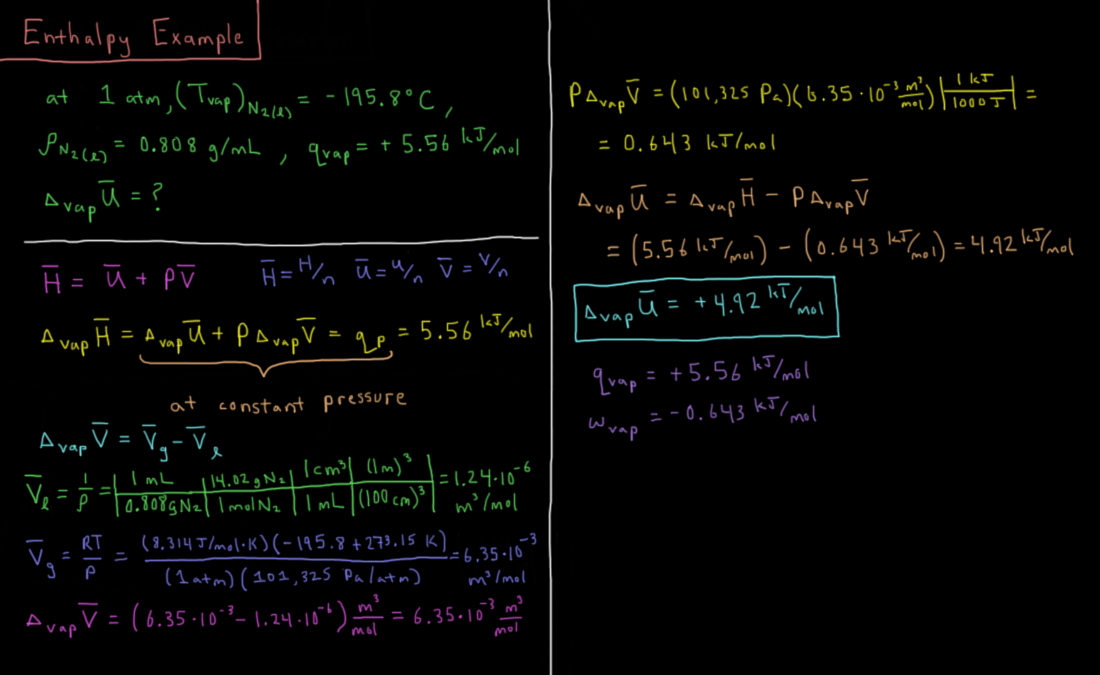 Enthalpy Example
at 1 atm, (T_vap)_N₂(ℓ) = -195.8°C,
ρ_N₂(ℓ) = 0.808 g/mL, q_vap = +5.56 kJ/mol
Δ_vap U̅ = ?
H̅ = U̅ + PV̅ H̅ = H/n U̅ = U/n V̅ = V/n
Δ_vap H̅ = Δ_vap U̅ + P Δ_vap V̅ = q_p = 5.56 kJ/mol
at constant pressure
Δ_vap V̅ = V̅_g - V̅_ℓ
V̅_ℓ = 1/ρ = | 1 mL / 0.808 g N₂ | 14.02 g N₂ / 1 mol N₂ | 1 cm³ / 1 mL | (1m)³ / (100 cm)³ | = 1.24·10⁻⁶ m³/mol
V̅_g = RT/P = (8.314 J/mol·K)(-195.8 + 273.15 K) / (1 atm)(101,325 Pa/atm) = 6.35·10⁻³ m³/mol
Δ_vap V̅ = (6.35·10⁻³ - 1.24·10⁻⁶) m³/mol = 6.35·10⁻³ m³/mol
PΔ_vap V̅ = (101,325 Pa)(6.35·10⁻³ m³/mol) | 1 kJ / 1000 J | =
= 0.643 kJ/mol
Δ_vap U̅ = Δ_vap H̅ - PΔ_vap V̅
= (5.56 kJ/mol) - (0.643 kJ/mol) = 4.92 kJ/mol
Δ_vap U̅ = +4.92 kJ/mol
q_vap = +5.56 kJ/mol
w_vap = -0.643 kJ/mol